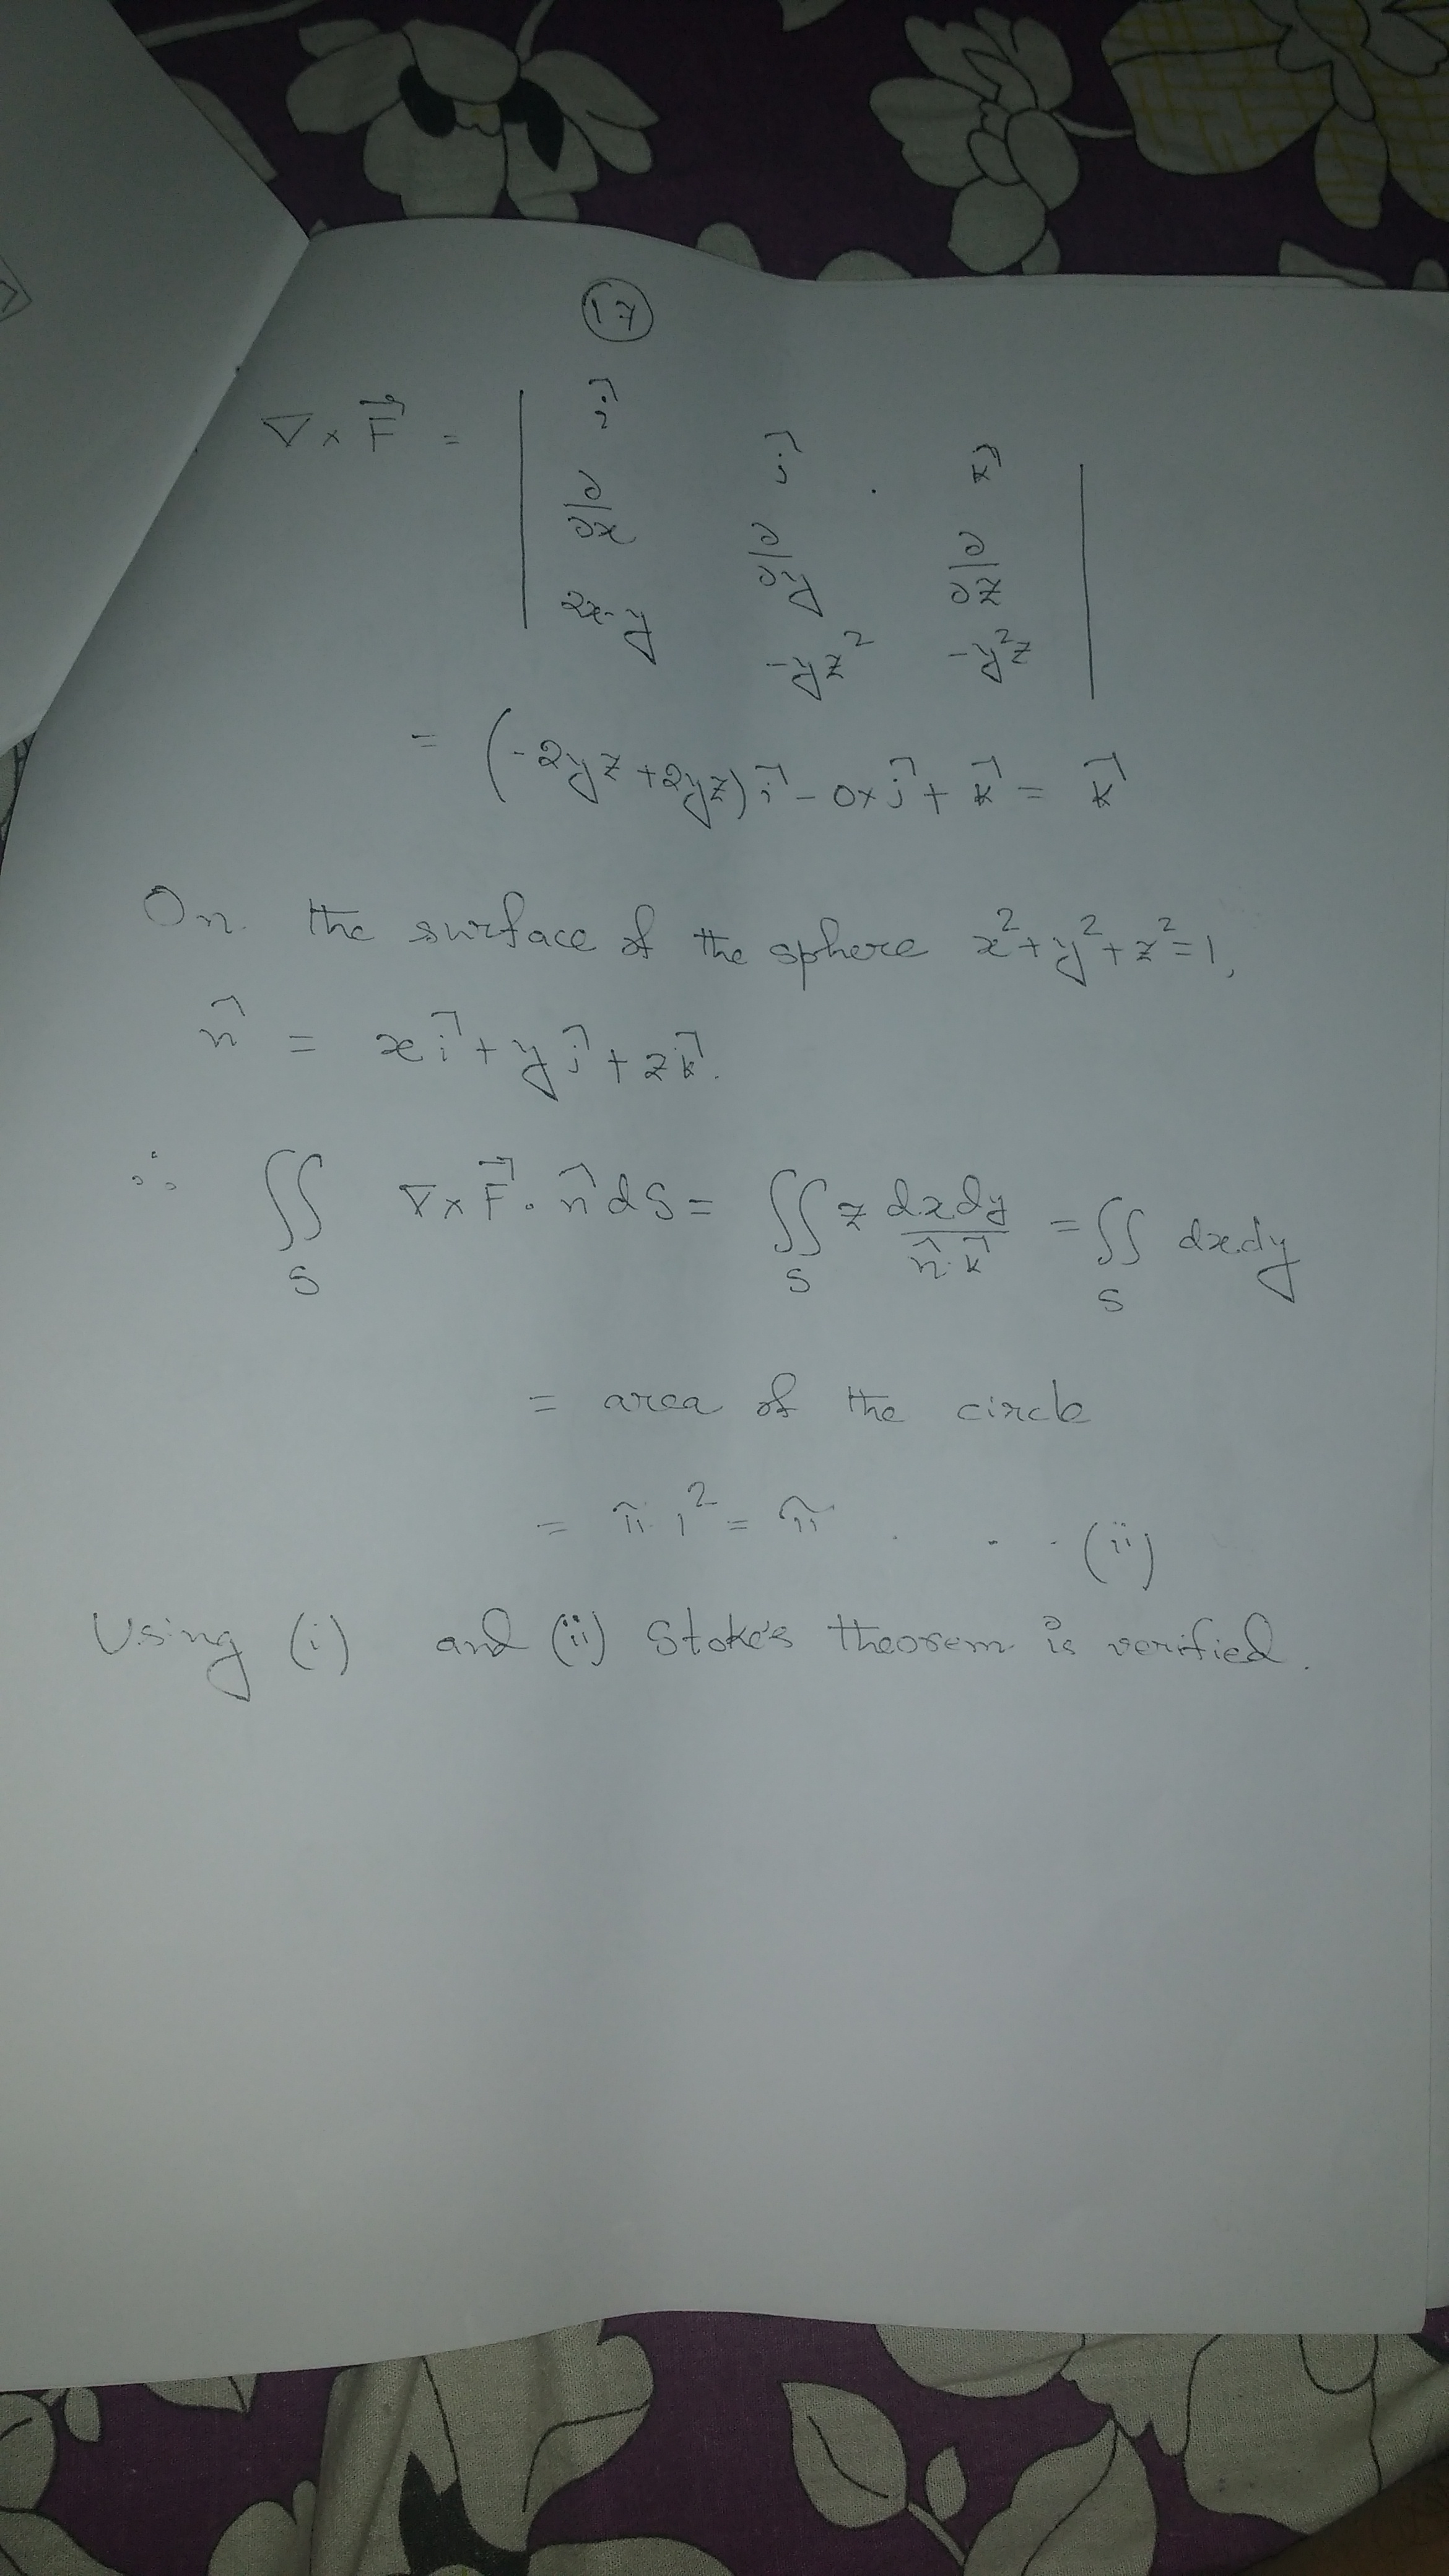 17
∇ × F⃗ = | i⃗ j⃗ k⃗ |
| ∂/∂x ∂/∂y ∂/∂z |
| 2x-y -yz² -y²z |
= (-2yz + 2yz) i⃗ - 0× j⃗ + k⃗ = k⃗
On the surface of the sphere x² + y² + z² = 1,
n̂ = x i⃗ + y j⃗ + z k⃗.
∴ ∬_S ∇ × F⃗ · n̂ dS = ∬_S z dxdy / n̂·k⃗ = ∬_S dxdy
= area of the circle
= π.1² = π . . . (ii)
Using (i) and (ii) Stoke's theorem is verified.